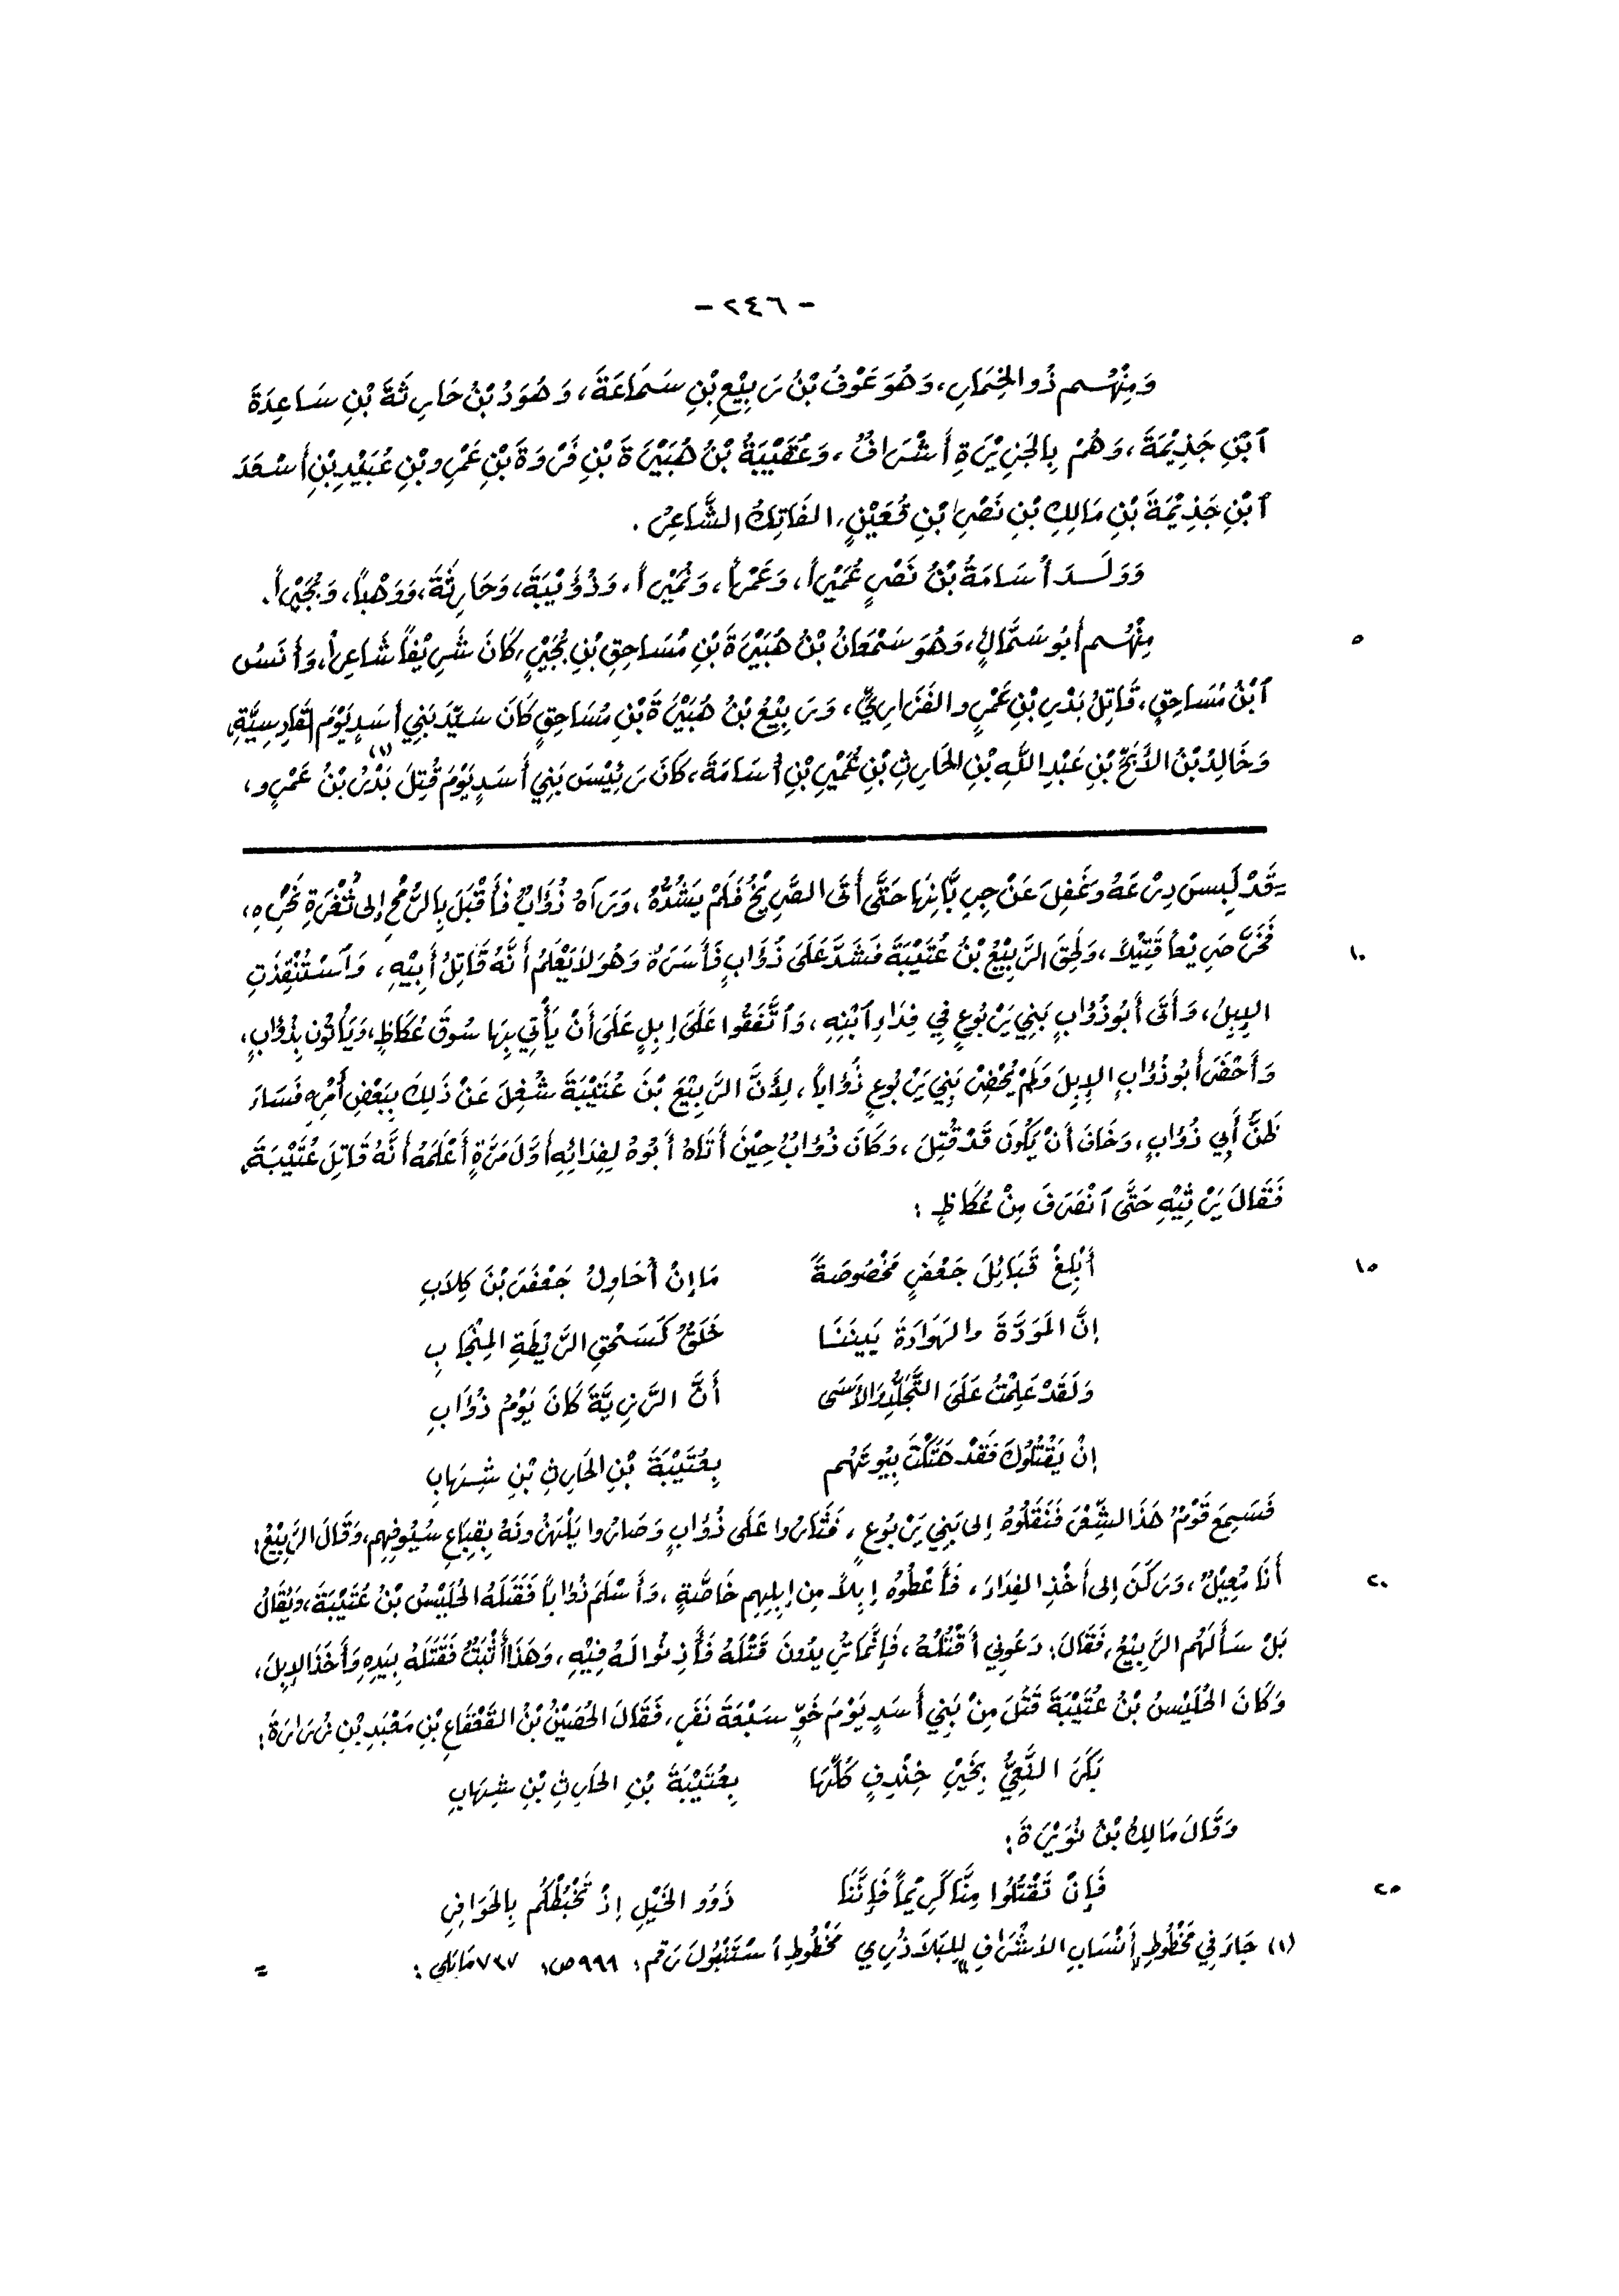 - ٢٤٦ -
وَمِنْهُم ذُو الخِمَارِ، وَهُوَ عَوْفُ بْنُ رَبِيْعِ بْنِ سَمَاعَةَ، وَهُوَدُ بْنُ حَارِثَةَ بْنِ سَاعِدَةَ
ٱبْنِ جَذِيْمَةَ، وَهُمْ بِالجَزِيْرَةِ أَشْرَافٌ، وَعُقَيْبَةُ بْنُ هُبَيْرَةَ بْنِ فَرْوَةَ بْنِ عَمْرِو بْنِ عُبَيْدِ بْنِ أَسْعَدَ
ٱبْنِ جَذِيْمَةَ بْنِ مَالِكِ بْنِ نَصْرِ بْنِ قُعَيْنٍ، الفَاتِكُ الشَّاعِرُ.
وَوَلَدَ أُسَامَةُ بْنُ نَصْرٍ عُمَيْراً، وَعَمْراً، وَنُمَيْراً، وَذُؤَيْبَةَ، وَحَارِثَةَ، وَوَهْباً، وَبُجَيْراً.
٥ مِنْهُم أَبُو سَمَّالٍ، وَهُوَ سَمْعَانُ بْنُ هُبَيْرَةَ بْنِ مُسَاحِقِ بْنِ بُجَيْرٍ، كَانَ شَرِيْفاً شَاعِراً، وَأَنَسُ
ٱبْنُ مُسَاحِقٍ، قَاتِلُ بَدْرِ بْنِ عَمْرٍو الفَزَارِيِّ، وَرَبِيْعُ بْنُ هُبَيْرَةَ بْنِ مُسَاحِقٍ كَانَ سَيِّدَ بَنِي أَسَدٍ يَوْمَ القَادِسِيَّةِ،
وَخَالِدُ بْنُ الأَبَحِّ بْنِ عَبْدِ اللَّهِ بْنِ الحَارِثِ بْنِ عُمَيْرِ بْنِ أُسَامَةَ، كَانَ رَئِيْسَ بَنِي أَسَدٍ يَوْمَ قُتِلَ بَدْرُ بْنُ عَمْرٍو(١)،
= قَدْ لَبِسَ دِرْعَهُ وَغَفِلَ عَنْ جِرِبَّانِهَا حَتَّى أَتَى الصَّرِيْخُ فَلَمْ يَشُدُّهُ، وَرَآهُ ذُؤَابٌ فَأَقْبَلَ بِالرُّمْحِ إِلى ثُغْرَةِ نَحْرِهِ،
١٠ فَخَرَّ صَرِيْعاً قَتِيْلاً، وَلَحِقَ الرَّبِيْعُ بْنُ عُتَيْبَةَ فَشَدَّ عَلَى ذُؤَابٍ فَأَسَرَهُ وَهُوَ لاَ يَعْلَمُ أَنَّهُ قَاتِلُ أَبِيْهِ، وَٱسْتُنْقِذَتِ
الإِبِلُ، وَأَتَى أَبُو ذُؤَابٍ بَنِي يَرْبُوعٍ فِي فِدَاءِ ٱبْنِهِ، وَٱتَّفَقُوا عَلَى إِبِلٍ عَلَى أَنْ يَأْتِي بِهَا سُوقَ عُكَاظٍ، وَيَأْتُونَ بِذُؤَابٍ،
وَأَحْضَرَ أَبُو ذُؤَابٍ الإِبِلَ وَلَمْ يُحْضِرْ بَنِي يَرْبُوعٍ ذُؤَاباً، لِأَنَّ الرَّبِيْعَ بْنَ عُتَيْبَةَ شُغِلَ عَنْ ذَلِكَ بِبَعْضِ أَمْرِهِ فَسَاءَ
ظَنُّ أَبِي ذُؤَابٍ، وَخَافَ أَنْ يَكُونَ قَدْ قُتِلَ، وَكَانَ ذُؤَابُ حِيْنَ أَتَاهُ أَبُوهُ لِفِدَائِهِ أَوَّلَ مَرَّةٍ أَعْلَمَهُ أَنَّهُ قَاتِلُ عُتَيْبَةَ،
فَقَالَ يَرْثِيْهِ حَتَّى ٱنْصَرَفَ مِنْ عُكَاظٍ :
١٥ أَبْلِغْ قَبَائِلَ جَعْفَرٍ مَخْصُوصَةً مَا إِنْ أُحَاوِلُ جَعْفَرَ بْنَ كِلاَبِ
إِنَّ المَوَدَّةَ والهَوَادَةَ بَيْنَنَا خَلَقٌ كَسَحْقِ الرَّيْطَةِ المِنْجَابِ
وَلَقَدْ عَلِمْتُ عَلَى التَّجَلُّدِ وَالأَسَى أَنَّ الرَّزِيَّةَ كَانَ يَوْمُ ذُؤَابِ
إِنْ يَقْتُلُوكَ فَقَدْ هَتَكْتَ بِيُوتَهُم بِعُتَيْبَةَ بْنِ الحَارِثِ بْنِ شِهَابِ
فَسَمِعَ قَوْمٌ هَذَا الشِّعْرَ فَنَقَلُوهُ إِلى بَنِي يَرْبُوعٍ، فَثَارُوا عَلَى ذُؤَابٍ وَصَارُوا يَلْهَزُونَهُ بِقِبَاعِ سُيُوفِهِم، وَقَالَ الرَّبِيْعُ:
٢٠ أَنَا مُعِيْلٌ، وَرَكَنَ إِلى أَخْذِ الفِدَاءِ، فَأَعْطُوهُ إِبِلاً مِن إِبِلِهِم خَاصَّةٍ، وَأَسْلَمَ ذُؤَاباً فَقَتَلَهُ الحُلَيْسُ بْنُ عُتَيْبَةَ، وَيُقَالُ
بَلْ سَأَلَهُم الرَّبِيْعُ، فَقَالَ: دَعُونِي أَقْتُلْهُ، فَإِنَّمَا تُرِيدُونَ قَتْلَهُ فَأْذِنُوا لَهُ فِيْهِ، وَهَذَا أَثْبَتُ فَقَتَلَهُ بِيَدِهِ وَأَخَذَ الإِبِلَ،
وَكَانَ الحُلَيْسُ بْنُ عُتَيْبَةَ قَتَلَ مِنْ بَنِي أَسَدٍ يَوْمَ خَوٍّ سَبْعَةَ نَفَرٍ، فَقَالَ الحُصَيْنُ بْنُ القَعْقَاعِ بْنِ مَعْبَدِ بْنِ زُرَارَةَ:
بَكَرَ النَّعِيُّ بِخَيْرِ خِنْدِفِ كُلِّهَا بِعُتَيْبَةَ بْنِ الحَارِثِ بْنِ شِهَابِ
وَقَالَ مَالِكُ بْنُ نُوَيْرَةَ:
٢٥ فَإِنْ تَقْتُلُوا مِنَّا كَرِيْماً فَإِنَّنَا ذَوُو الخَيْلِ إِذْ تَخْبُطْكُم بِالحَوَافِرِ
(١) جَاءَ فِي مَخْطُوطِ أَنْسَابِ الأَشْرَافِ لِلبَلاَذُرِي مَخْطُوطِ ٱسْتَنْبُولَ رَقم: ٩٩٩ ص: ٧٣٧ مَايَلِي : =